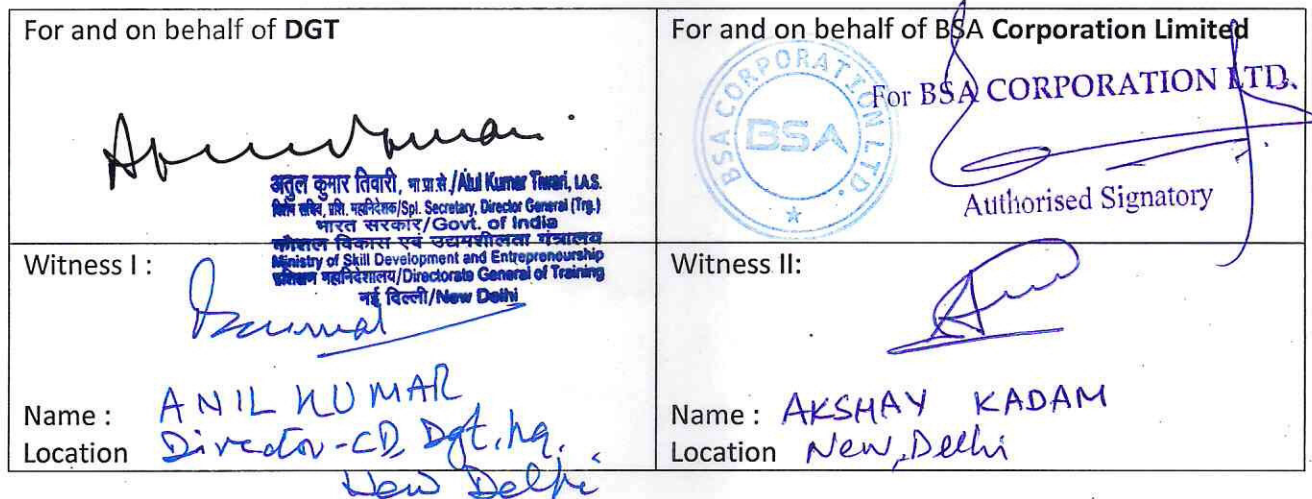 For and on behalf of DGT
अतुल कुमार तिवारी, भा.प्र.से./Atul Kumar Tiwari, I.A.S.
विशेष सचिव, प्रशि. महानिदेशक/Spl. Secretary, Director General (Trg.)
भारत सरकार/Govt. of India
कौशल विकास एवं उद्यमशीलता मंत्रालय
Ministry of Skill Development and Entrepreneurship
प्रशिक्षण महानिदेशालय/Directorate General of Training
नई दिल्ली/New Delhi
For and on behalf of BSA Corporation Limited
BSA CORPORATION LTD.
BSA
For BSA CORPORATION LTD.
Authorised Signatory
Witness I :
Name : ANIL KUMAR
Location Director-CD, Dgt, hq.
New Delhi
Witness II:
Name : AKSHAY KADAM
Location New, Delhi